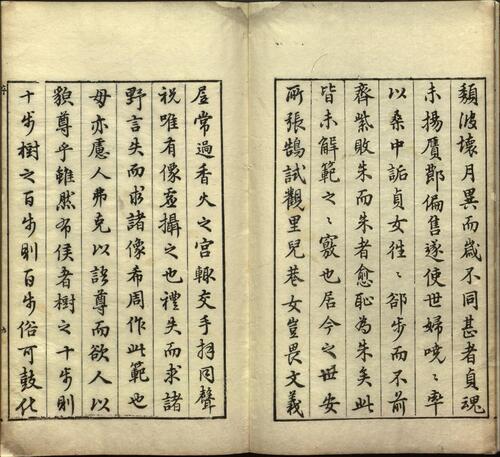 頹波壞月異而嵗不同甚者貞魂
未揚贋鄭偏售遂使世婦嘵〻率
以桑中詬貞女徃〻郤步而不前
齊紫敗朱而朱者愈恥為朱矣此
皆未解範之〻竅也居今之世安
所張鵠試觀里兒巷女豈畏文義
屋常過香火之宮輙交手拜同聲
祝唯有像壼攝之也禮失而求諸
野言失而求諸像希周作此範也
毋亦慮人弗克以諺尊而欲人以
貌尊乎雖然布侯者樹之十步則
十步樹之百步則百步俗可鼓化